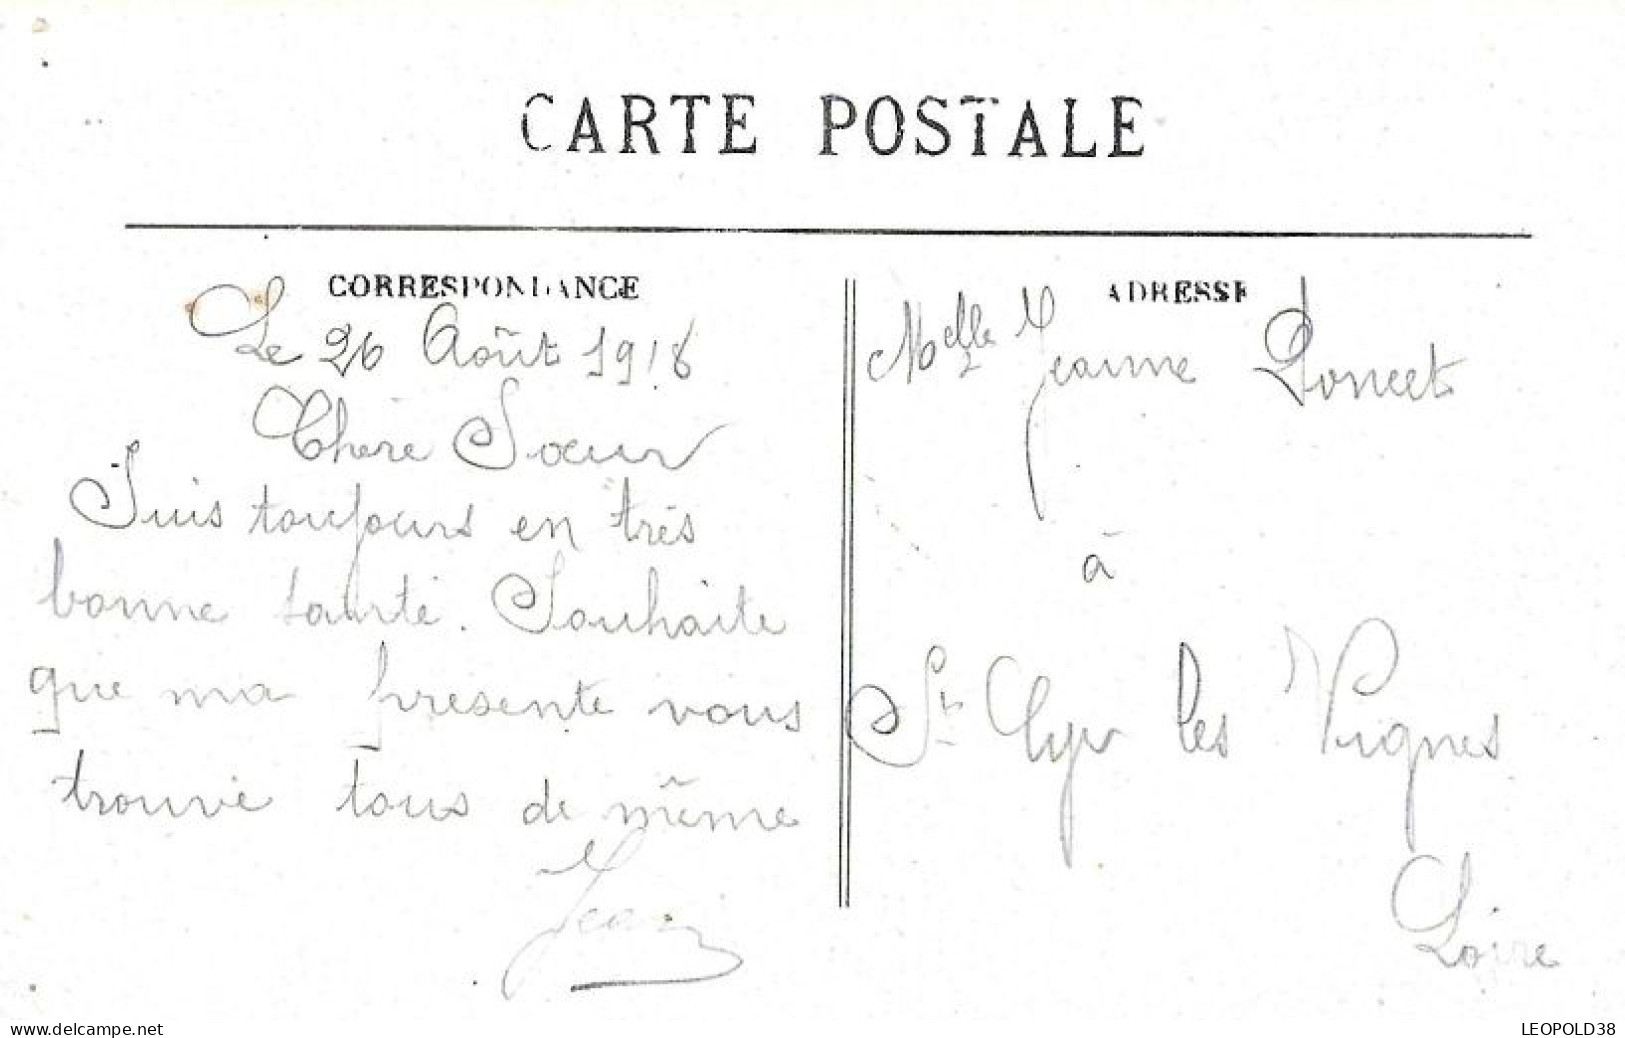 CARTE POSTALE
CORRESPONDANCE
Le 26 Août 1918
Chère Soeur
Suis toujours en très
bonne santé. Souhaite
que ma présente vous
trouve tous de même
Jean
ADRESSE
Melle Jeanne Poncet
à
St Cyr les Vignes
Loire
www.delcampe.net
LEOPOLD38